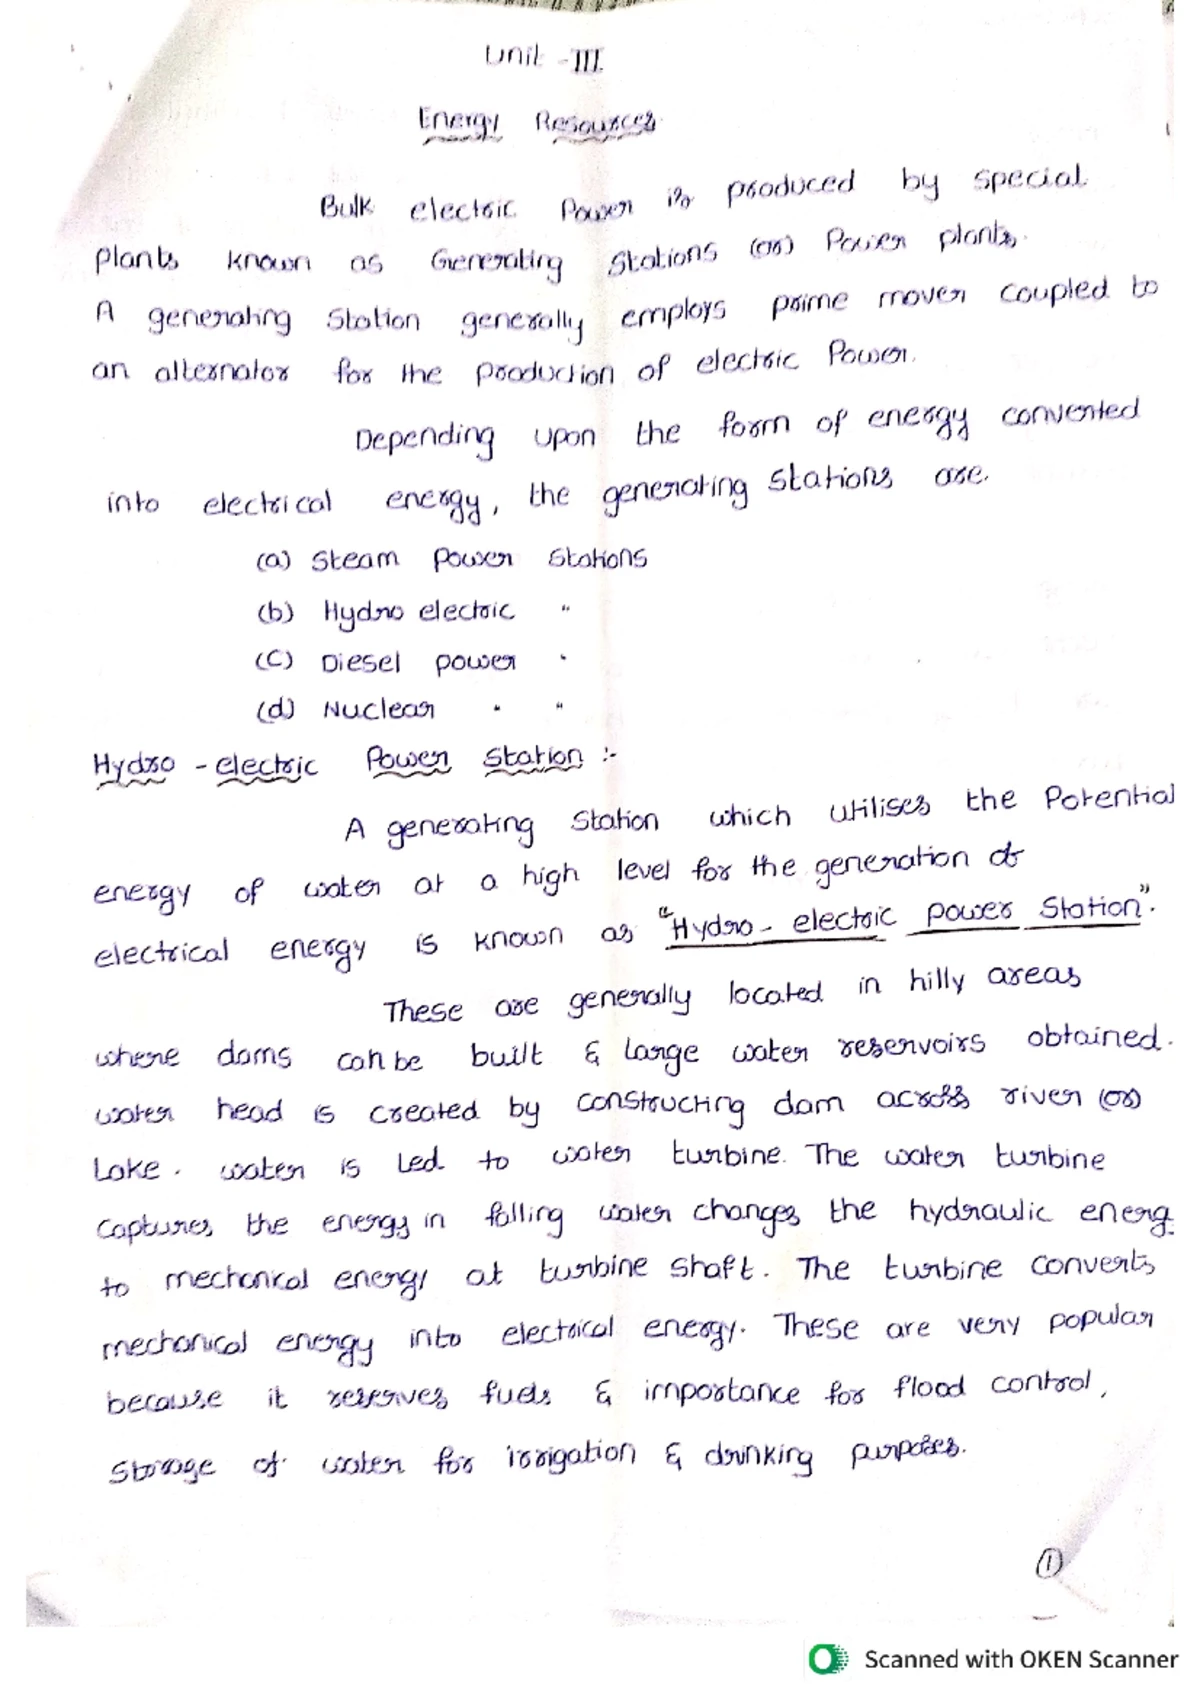 Unit -III
Energy Resources
Bulk electric Power is produced by special
plants known as Generating Stations (or) Power plants.
A generating Station generally employs prime mover coupled to
an alternator for the production of electric Power.
Depending upon the form of energy converted
into electrical energy, the generating stations are.
(a) Steam Power Stations
(b) Hydro electric "
(C) Diesel power "
(d) Nuclear " "
Hydro - electric Power Station :-
A generating Station which utilises the Potential
energy of water at a high level for the generation of
electrical energy is known as "Hydro - electric power Station".
These are generally located in hilly areas
where dams can be built & large water reservoirs obtained.
water head is created by constructing dam across river (or)
Lake. water is led to water turbine. The water turbine
captures the energy in falling water changes the hydraulic energ
to mechanical energy at turbine shaft. The turbine converts
mechanical energy into electrical energy. These are very popular
because it reserves fuels & importance for flood control,
storage of water for irrigation & drinking purposes.
1
Scanned with OKEN Scanner